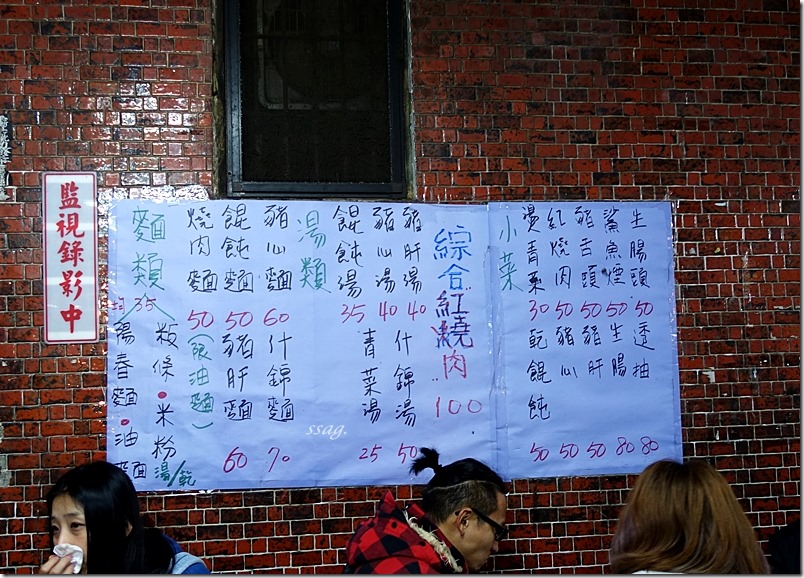 監視錄影中
麵類
均35
陽春麵・油麵
粄條・米粉
湯/乾
燒肉麵 50
(限油麵)
餛飩麵 50
豬肝麵 60
豬心麵 60
什錦麵 70
湯類
餛飩湯 35
青菜湯 25
豬心湯 40
豬肝湯 40
什錦湯 50
綜合紅燒肉 100
小菜
燙青菜 30
乾餛飩 50
紅燒肉 50
豬心 50
豬舌頭 50
豬肝 50
鯊魚煙 50
生腸 80
生腸頭 50
透抽 80
ssag.